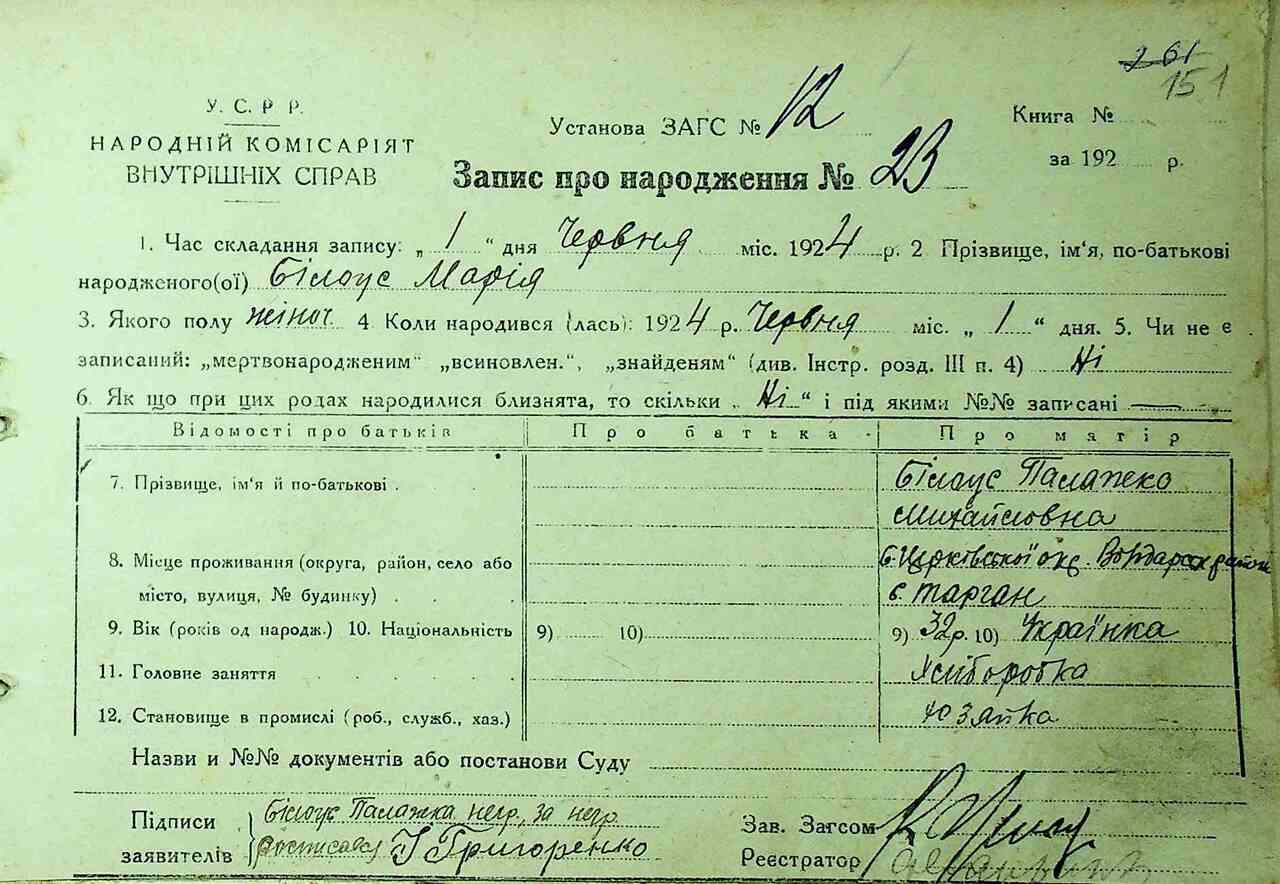 261
151
У. С. Р Р.
НАРОДНІЙ КОМІСАРІЯТ
ВНУТРІШНІХ СПРАВ
Установа ЗАГС № 12
Книга №
за 192 р.
Запис про народження № 23
1. Час складання запису: „ 1 “ дня Червня міс. 1924 р. 2 Прізвище, ім‘я, по-батькові
народженого(ої) Білоус Марія
3. Якого полу жіноч. 4 Коли народився (лась): 1924 р. Червня міс. „ 1 “ дня. 5. Чи не є
записаний: „мертвонародженим“ „всиновлен.“, „знайденям“ (див. Інстр. розд. III п. 4) Ні
6. Як що при цих родах народилися близнята, то скільки „ Ні “ і під якими №№ записані —
Відомості про батьків Про батька Про матір
7. Прізвище, ім‘я й по-батькові . Білоус Палажко
Михайловна
8. Місце проживання (округа, район, село або Б. Церківської окр. Володарск район
місто, вулиця, № будинку) . . с. Тарган
9. Вік (років од народж.) 10. Національність 9) 10) 9) 32 р. 10) Українка
11. Головне заняття Хліборобка
12. Становище в промислі (роб., служб., хаз.) Хозяйка
Назви и №№ документів або постанови Суду
Підписи Білоус Палажка негр., за негр.
заявителів росписався І Григоренко
Зав. Загсом
Реєстратор